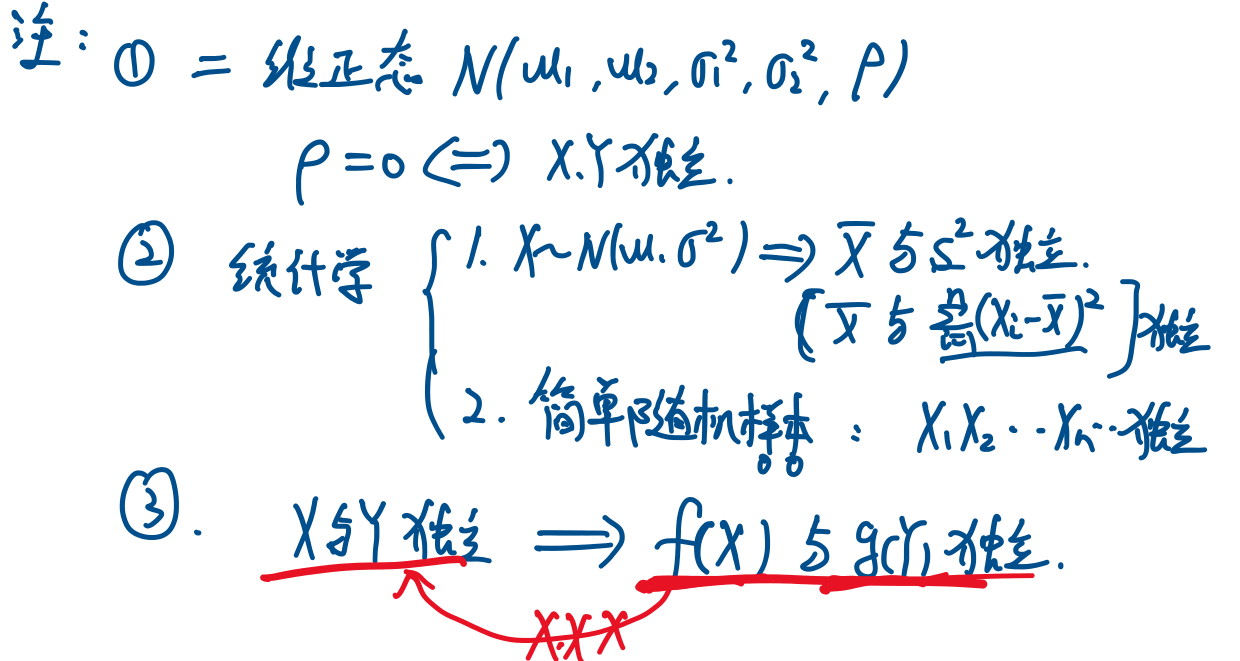 注: ① 二维正态 N(μ₁, μ₂, σ₁², σ₂², ρ)
ρ=0 <=> X.Y独立.
② 统计学 { 1. X~N(μ, σ²) => X̄ 与 S² 独立.
[X̄ 与 ∑ᵢ₌₁ⁿ(Xᵢ-X̄)²] 独立
2. 简单随机样本: X₁X₂··Xₙ··独立
③. X与Y独立 => f(X) 与 g(Y) 独立.
X.X X